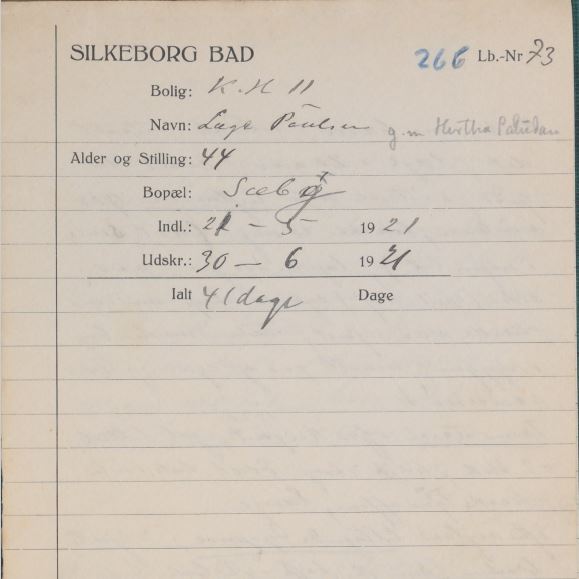 SILKEBORG BAD 266 Lb.-Nr 73
Bolig: K. H 11
Navn: Læge Poulsen g. m Hertha Paludan
Alder og Stilling: 44
Bopæl: Sæby
Indl.: 21 - 5 - 19 21
Udskr.: 30 - 6 19 21
Ialt 41 dage Dage